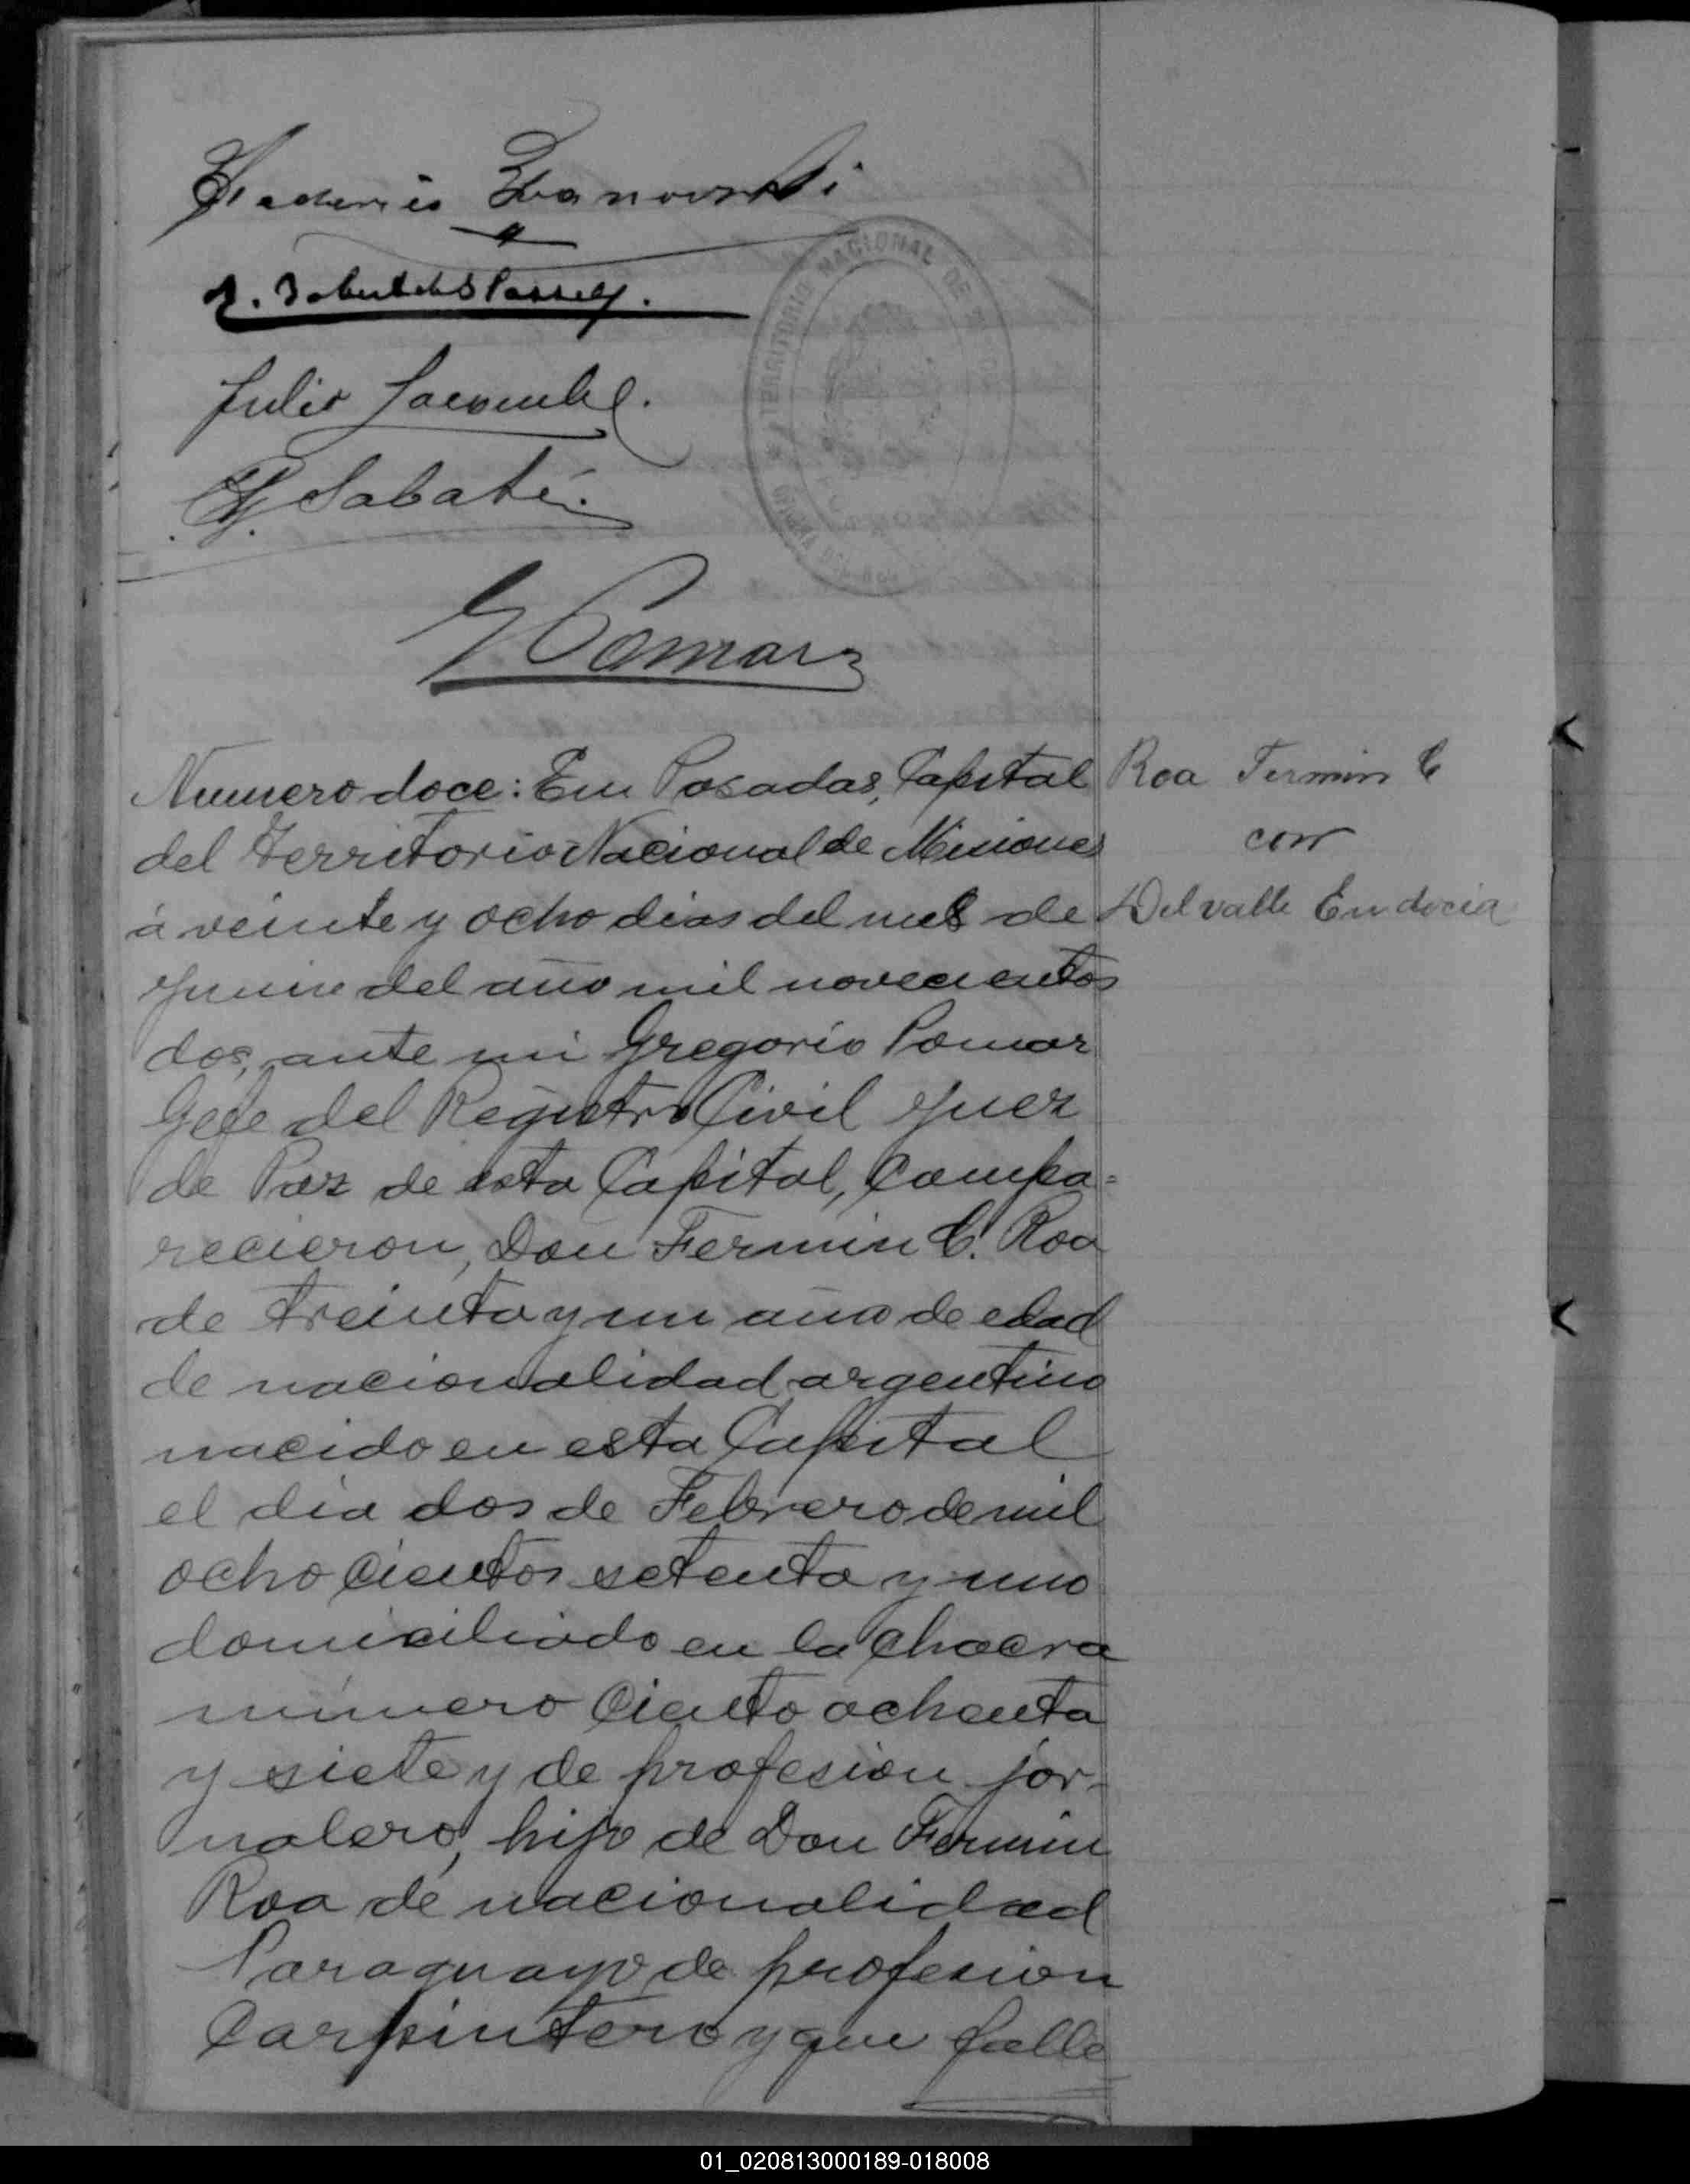 Federico
Julio
Sabaté.
G Pomar
TERRITORIO NACIONAL DE
Numero doce: En Posadas, Capital
del Territorio Nacional de Misiones
á veinte y ocho dias del mes de
Junio del año mil novecientos
dos, ante mi Gregorio Pomar
Gefe del Registro Civil Juez
de Paz de esta Capital, Compa=
recieron, Don Fermin C. Roa
de treinta y un año de edad
de nacionalidad argentino
nacido en esta Capital
el dia dos de Febrero de mil
ocho cientos setenta y uno
domiciliado en la chacra
número Ciento ochenta
y siete y de profesion jor-
nalero, hijo de Don Fermin
Roa de nacionalidad
Paraguayo de profesion
Carpintero y que falle
Roa Fermin C
con
Delvalle Eudocia
01_020813000189-018008